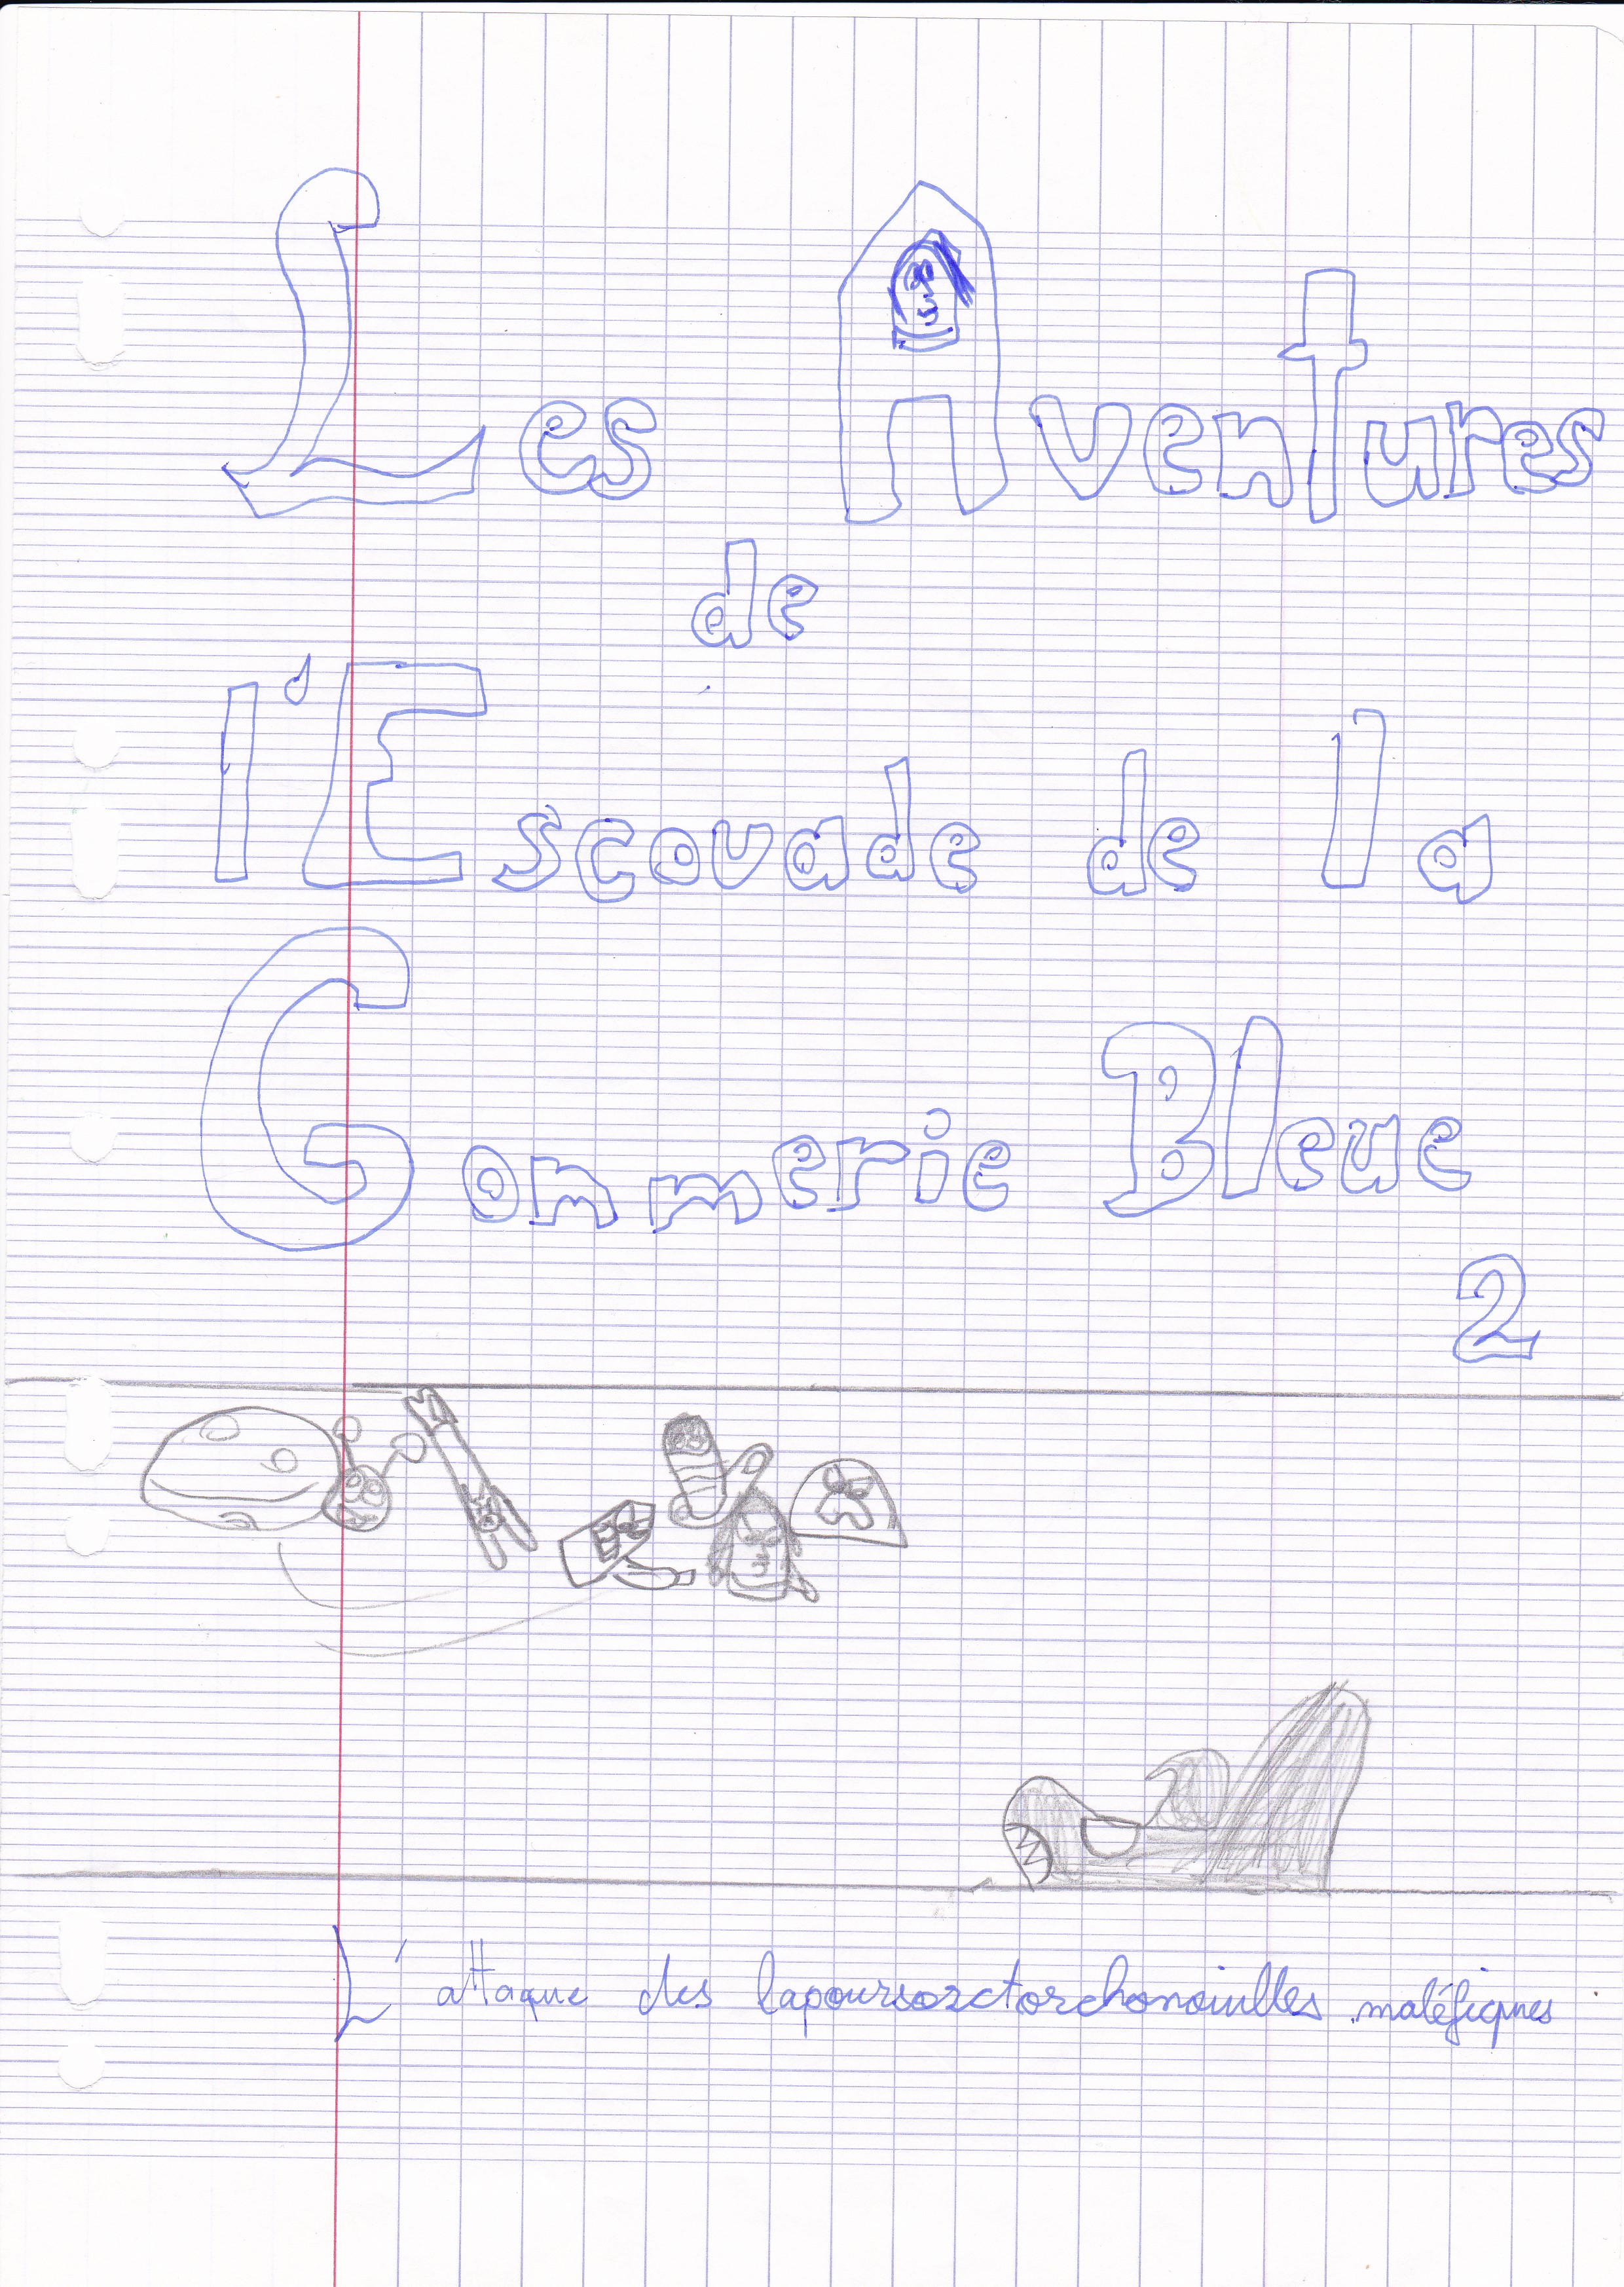 Les Aventures
de
l'Escouade de la
Gommerie Bleue
2
L'attaque des lapoursorctorchonouilles maléfiques